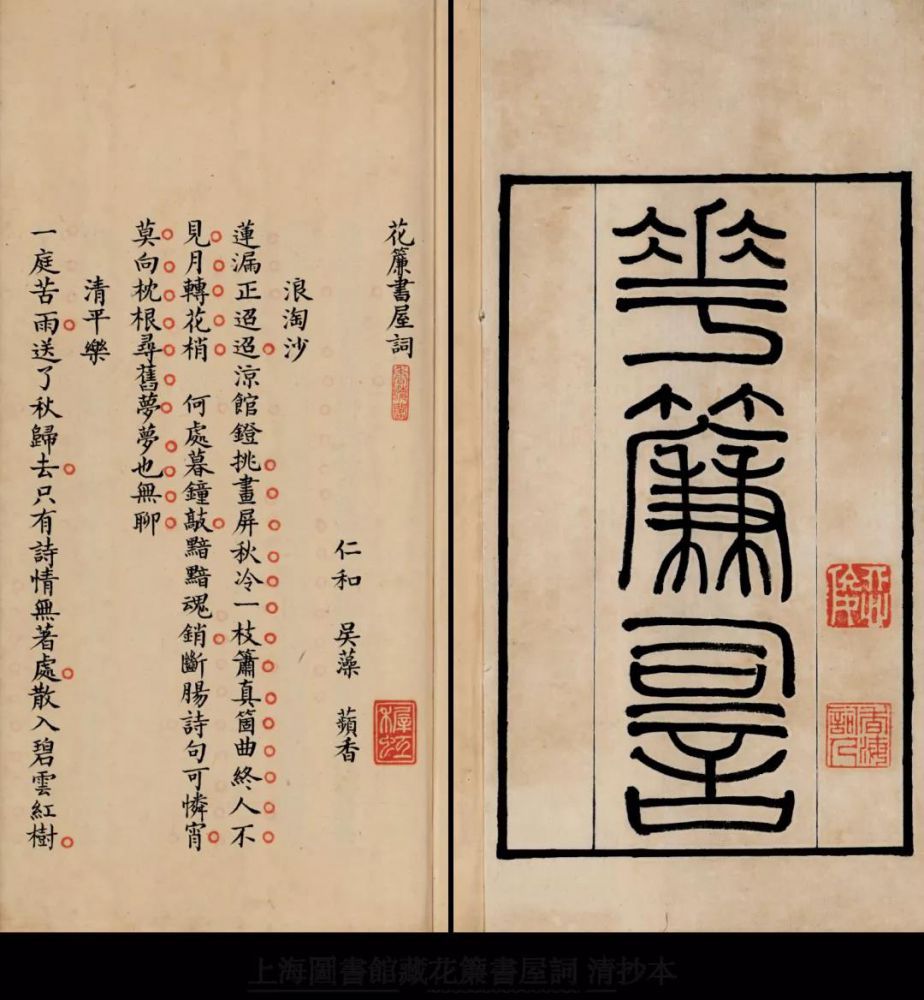 華簾䛐
花簾書屋詞
仁和 吳藻 蘋香
浪淘沙
蓮漏正迢迢涼館鐙挑畫屏秋冷一枝簫真箇曲終人不
見月轉花梢 何處暮鐘敲黯黯魂銷斷腸詩句可憐宵
莫向枕根尋舊夢夢也無聊
清平樂
一庭苦雨送了秋歸去只有詩情無著處散入碧雲紅樹
上海圖書館藏花簾書屋詞 清抄本